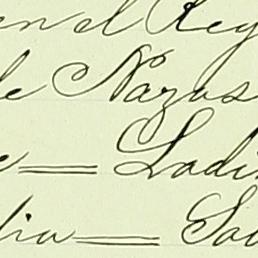 en el Reg
de Nazas
e = Ladi
lia = Sa